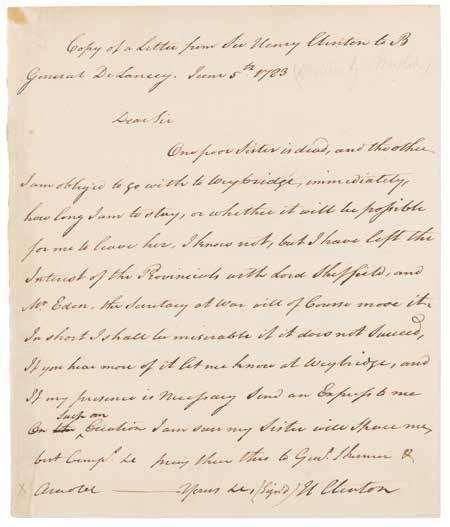 Copy of a Letter from Sir Henry Clinton to B
General De Lancey. June 5th 1783
Dear Sir
One poor Sister is dead, and the other
I am obliged to go with to Weybridge, immediately,
how long I am to stay, or whether it will be possible
for me to leave her, I know not, but I have left the
Interest of the Provincials with Lord Sheffield, and
Mr Eden. the Secretary at War will of Course move it.
In short I shall be miserable if it does not Succeed,
If you hear more of it let me know at Weybridge, and
If my presence is Necessary Send an Express to me
Such an
On Occation I am sure my Sister will Spare me,
but Compts. &c pray shew this to Genl. Skinner &
Arnold Yours &c, (Signd) H Clinton